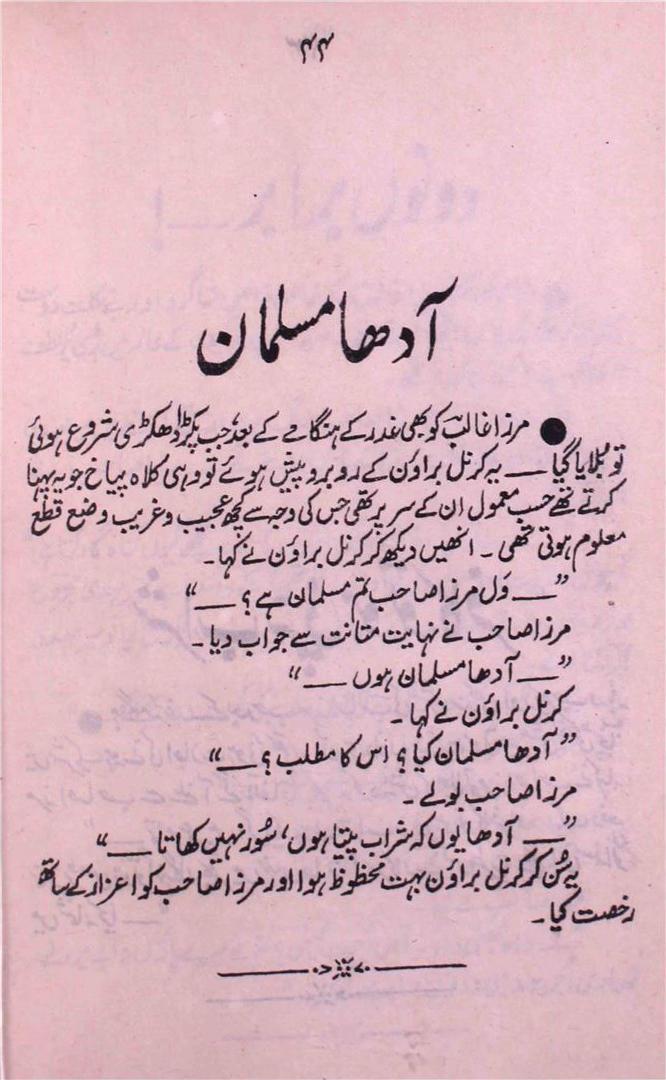 ۴۴
آدھا مسلمان
● مرزا غالبؔ کو بھی غدر کے ہنگامے کے بعد، جب پکڑ دھکڑی شروع ہوئی
تو بُلایا گیا — یہ کرنل براؤن کے روبرو پیش ہوئے تو وہی کلاہ پپاخ جو یہ پہنا
کرتے تھے حسبِ معمول ان کے سر پر تھی جس کی وجہ سے کچھ عجیب و غریب وضع قطع
معلوم ہوتی تھی۔ انھیں دیکھ کر کرنل براؤن نے کہا۔
”— وَل مرزا صاحب تم مسلمان ہے؟ —“
مرزا صاحب نے نہایت متانت سے جواب دیا۔
”— آدھا مسلمان ہوں —“
کرنل براؤن نے کہا۔
”آدھا مسلمان کیا؟ اس کا مطلب؟ —“
مرزا صاحب بولے۔
”— آدھا یوں کہ شراب پیتا ہوں، سُور نہیں کھاتا —“
یہ سُن کر کرنل براؤن بہت محظوظ ہوا اور مرزا صاحب کو اعزاز کے ساتھ
رخصت کیا۔